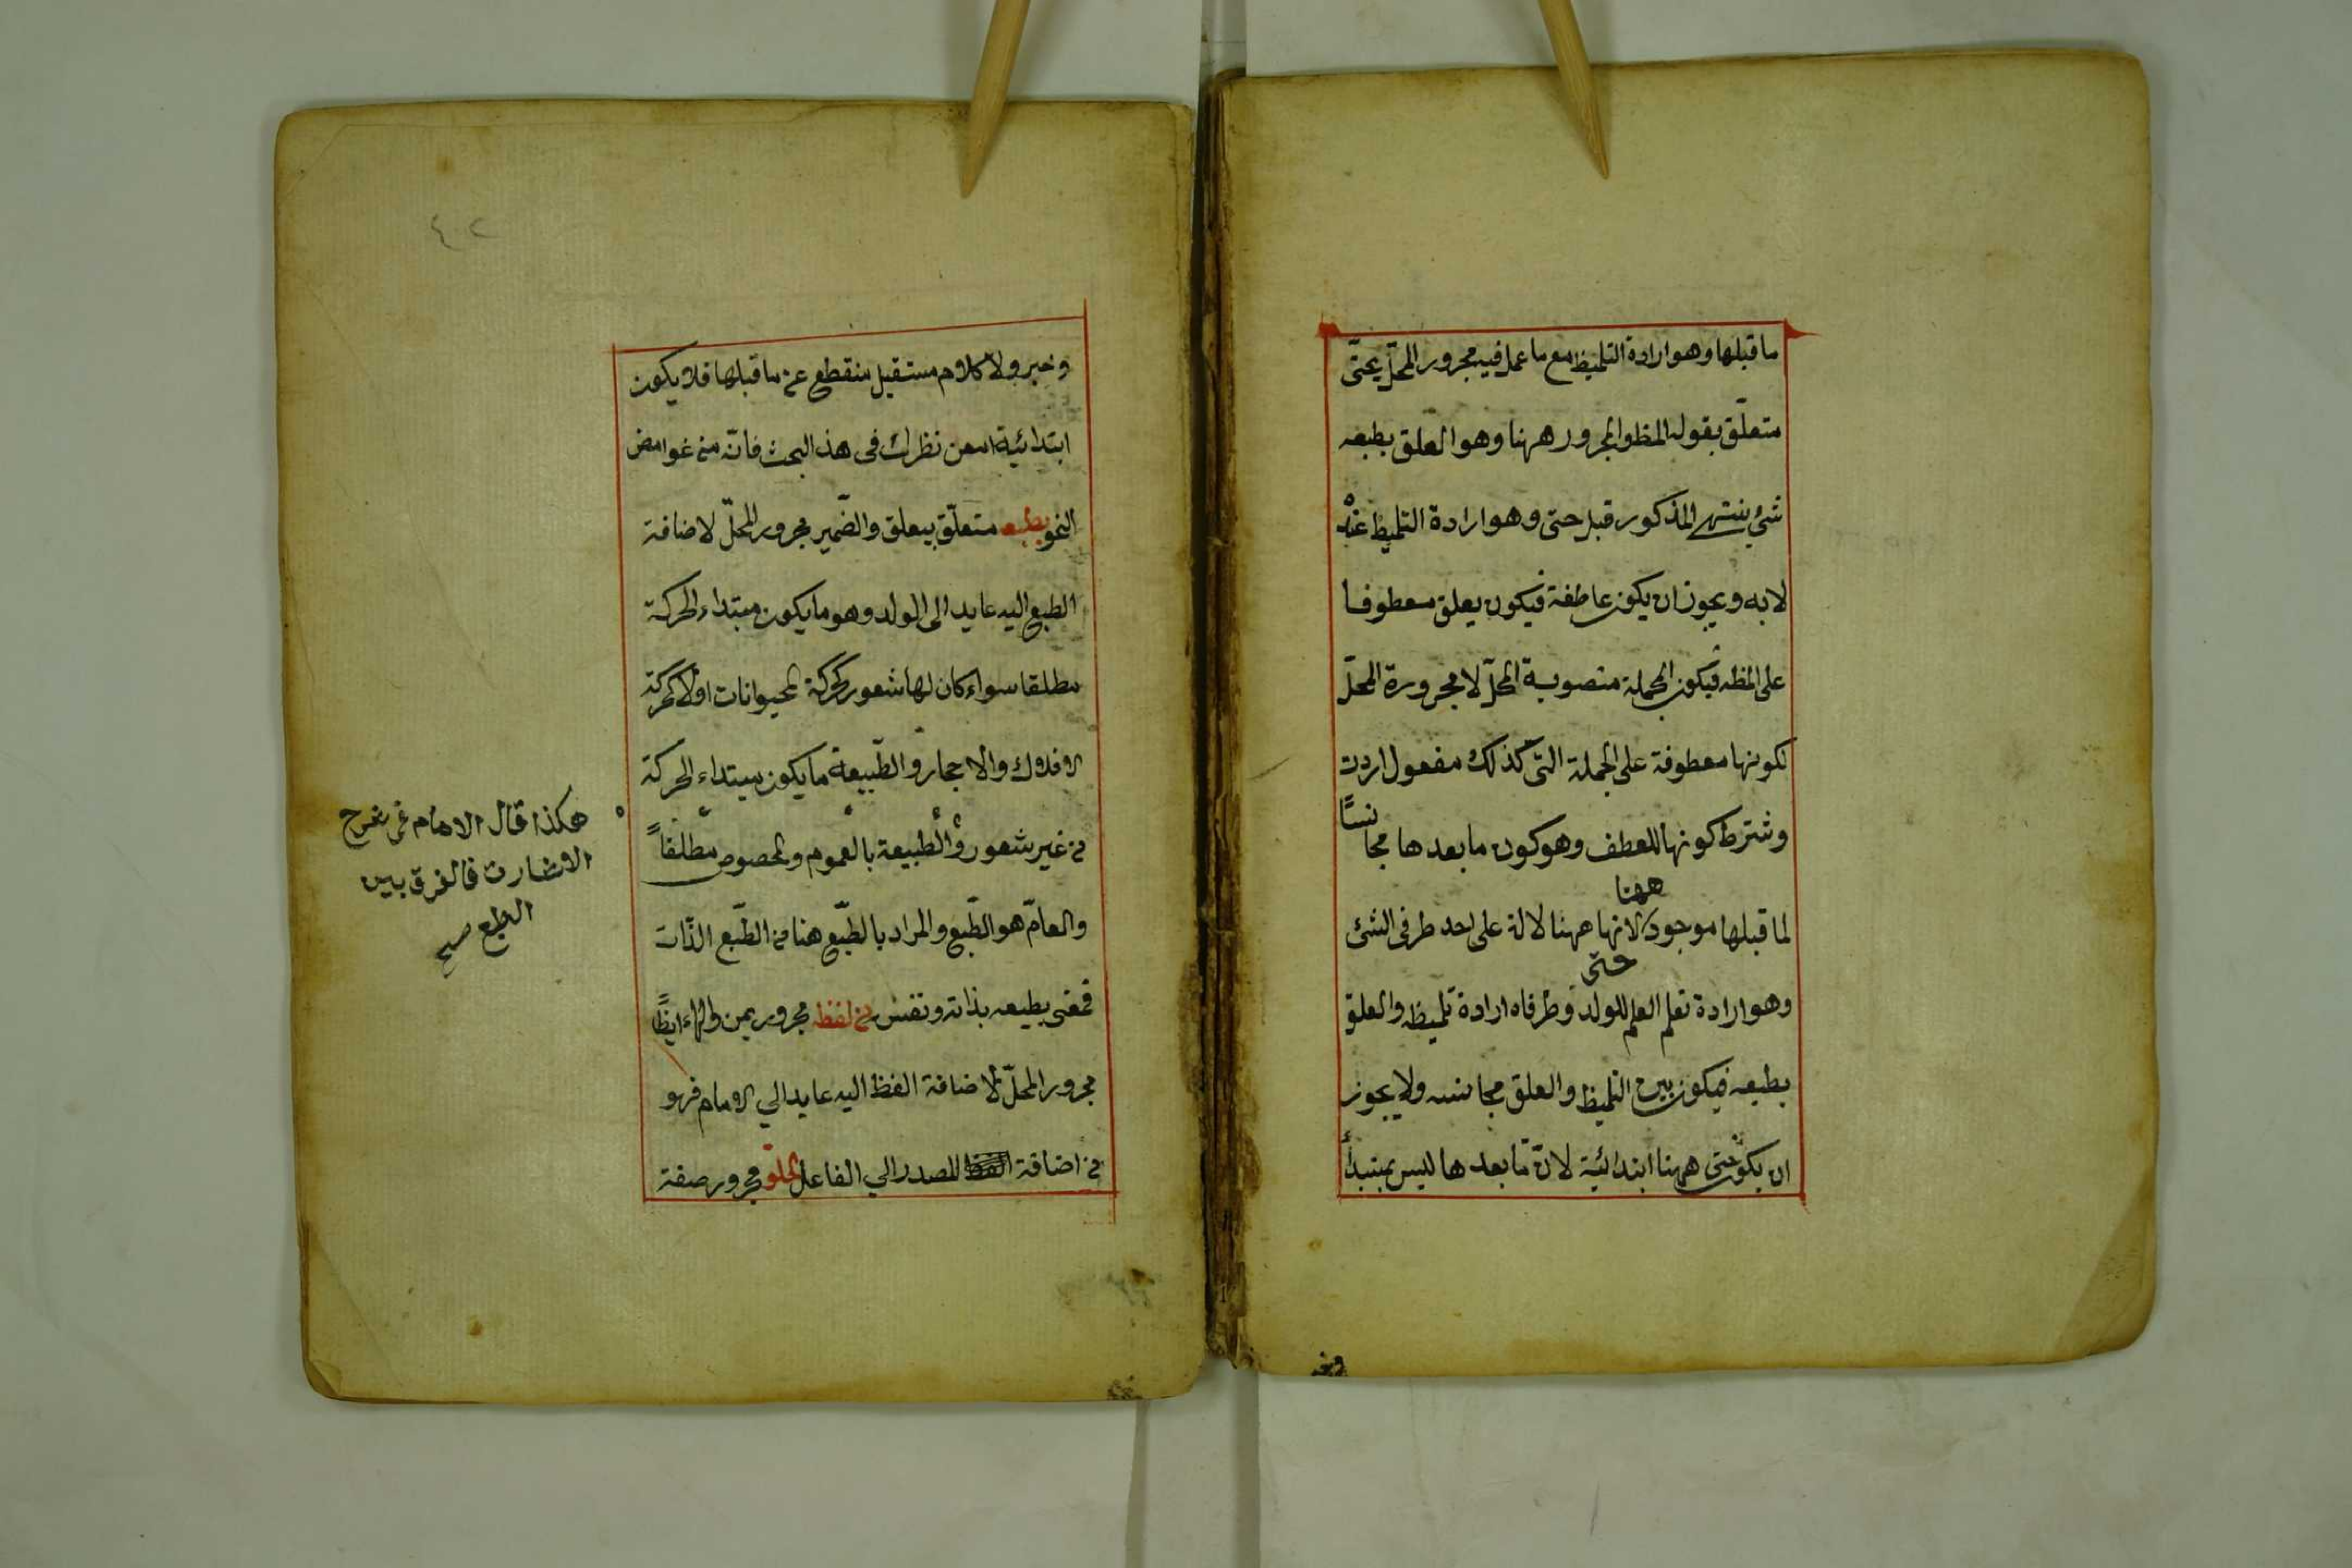 ما قبلها وهو ارادة التلميظ مع ما عمل فيه مجرور المحلّ بحتّى
متعلّق بقوله المظ والمجرور ههنا وهو العلق بطبعه
شئ ينتهى المذكور قبل حتى وهو ارادة التلميظ عنْد
لا به ويجوز ان يكون عاطفة فيكون يعلق معطوفا
على المظه فيكون الجملة منصوبة المحلّ لا مجرورة المحلّ
لكونها معطوفة على الجملة التى كذلك مفعول اردت
وشترط كونها للعطف وهو كون ما بعدها مجانسًا
لما قبلها موجود ههنا لانها ههنا لالة على احد طرفى الشئ
وهو ارادة تعلم العلم للولد حتى وطرفاه ارادة تلميظه والعلق
بطبعه فيكون بين التلميظ والعلق مجانسه ولا يجوز
ان يكون حتى ههنا ابتدائية لانّ ما بعدها ليس بمبتدأ
وخبر ولا كلام مستقبل منقطع عن ما قبلها فلا يكون
ابتدائية امعن نظرك فى هذ البحث فانّه من غوامض
النحو بطبعه متعلّق بيعلق والضّمير مجرور المحلّ لاضافة
الطبع اليه عايد الى الولد وهو ما يكون مبتداء الحركة
مطلقا سواء كان لها شعور كحركة الحيوانات اولا كحركة
الافلاك والاحجار والطّبيعة ما يكون مبتداء الحركة
من غير شعور والطبيعة بالعموم والخصوص مطلقاً
والعامّ هو الطّبع والمراد بالطّبع هنا من الطّبع الذّات
فمعنى بطبعه بذاته ونفسه من لفظه مجرور بمن والهاء ايضًا
مجرور المحلّ لاضافة الفظ اليه عايد الي الامام فهو
من اضافة المصدر الي الفاعل الحلو مجرور صفة
هكذا قال الامام فى شرح
الاشارت فالفرق بين
الطبع صح
وخبر
٤٢